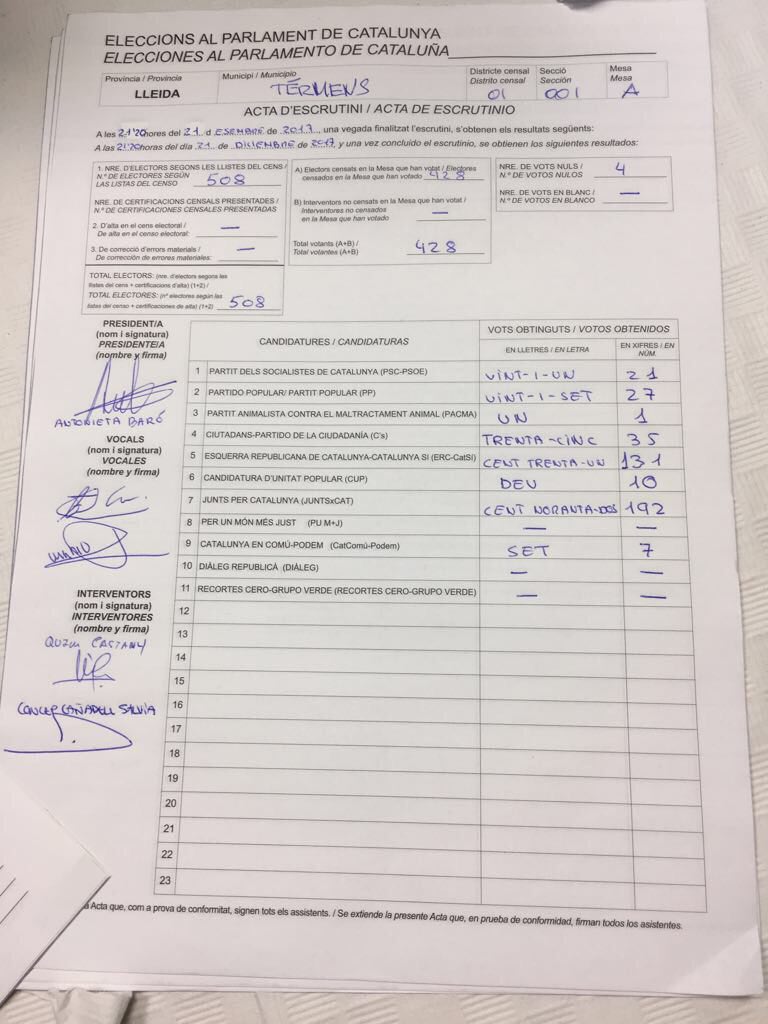 ELECCIONS AL PARLAMENT DE CATALUNYA
ELECCIONES AL PARLAMENTO DE CATALUÑA
Província / Provincia
LLEIDA
Municipi / Municipio
TÉRMENS
Districte censal
Distrito censal
01
Secció
Sección
001
Mesa
Mesa
A
ACTA D'ESCRUTINI / ACTA DE ESCRUTINIO
A les 21'20 hores del 21 d ESEMBRE de 2017, una vegada finalitzat l'escrutini, s'obtenen els resultats següents:
A las 21'20 horas del día 21 de DICIEMBRE de 2017 y una vez concluido el escrutinio, se obtienen los siguientes resultados:
1. NRE. D'ELECTORS SEGONS LES LLISTES DEL CENS /
N.º DE ELECTORES SEGÚN
LAS LISTAS DEL CENSO 508
NRE. DE CERTIFICACIONS CENSALS PRESENTADES /
N.º DE CERTIFICACIONES CENSALES PRESENTADAS
2. D'alta en el cens electoral /
De alta en el censo electoral: —
3. De correcció d'errors materials /
De corrección de errores materiales: —
TOTAL ELECTORS: (nre. d'electors segons les
llistes del cens + certificacions d'alta) (1+2) /
TOTAL ELECTORES: (nº electores según las
listas del censo + certificaciones de alta) (1+2) 508
A) Electors censats en la Mesa que han votat / Electores
censados en la Mesa que han votado 428
B) Interventors no censats en la Mesa que han votat /
Interventores no censados
en la Mesa que han votado —
Total votants (A+B) /
Total votantes (A+B) 428
NRE. DE VOTS NULS /
N.º DE VOTOS NULOS 4
NRE. DE VOTS EN BLANC /
N.º DE VOTOS EN BLANCO —
PRESIDENT/A
(nom i signatura)
PRESIDENTE/A
(nombre y firma)
ANTONIETA BARÓ
VOCALS
(nom i signatura)
VOCALES
(nombre y firma)
INTERVENTORS
(nom i signatura)
INTERVENTORES
(nombre y firma)
QUIM CASTANY
CONCEP CAÑADELL SALVIA
CANDIDATURES / CANDIDATURAS
VOTS OBTINGUTS / VOTOS OBTENIDOS
EN LLETRES / EN LETRA
EN XIFRES / EN NÚM.
1 PARTIT DELS SOCIALISTES DE CATALUNYA (PSC-PSOE) VINT-I-UN 21
2 PARTIDO POPULAR/ PARTIT POPULAR (PP) VINT-I-SET 27
3 PARTIT ANIMALISTA CONTRA EL MALTRACTAMENT ANIMAL (PACMA) UN 1
4 CIUTADANS-PARTIDO DE LA CIUDADANÍA (C's) TRENTA-CINC 35
5 ESQUERRA REPUBLICANA DE CATALUNYA-CATALUNYA SÍ (ERC-CatSí) CENT TRENTA-UN 131
6 CANDIDATURA D'UNITAT POPULAR (CUP) DEU 10
7 JUNTS PER CATALUNYA (JUNTSxCAT) CENT NORANTA-DOS 192
8 PER UN MÓN MÉS JUST (PU M+J) — —
9 CATALUNYA EN COMÚ-PODEM (CatComú-Podem) SET 7
10 DIÀLEG REPUBLICÀ (DIÀLEG) — —
11 RECORTES CERO-GRUPO VERDE (RECORTES CERO-GRUPO VERDE) — —
12
13
14
15
16
17
18
19
20
21
22
23
a Acta que, com a prova de conformitat, signen tots els assistents. / Se extiende la presente Acta que, en prueba de conformidad, firman todos los asistentes.